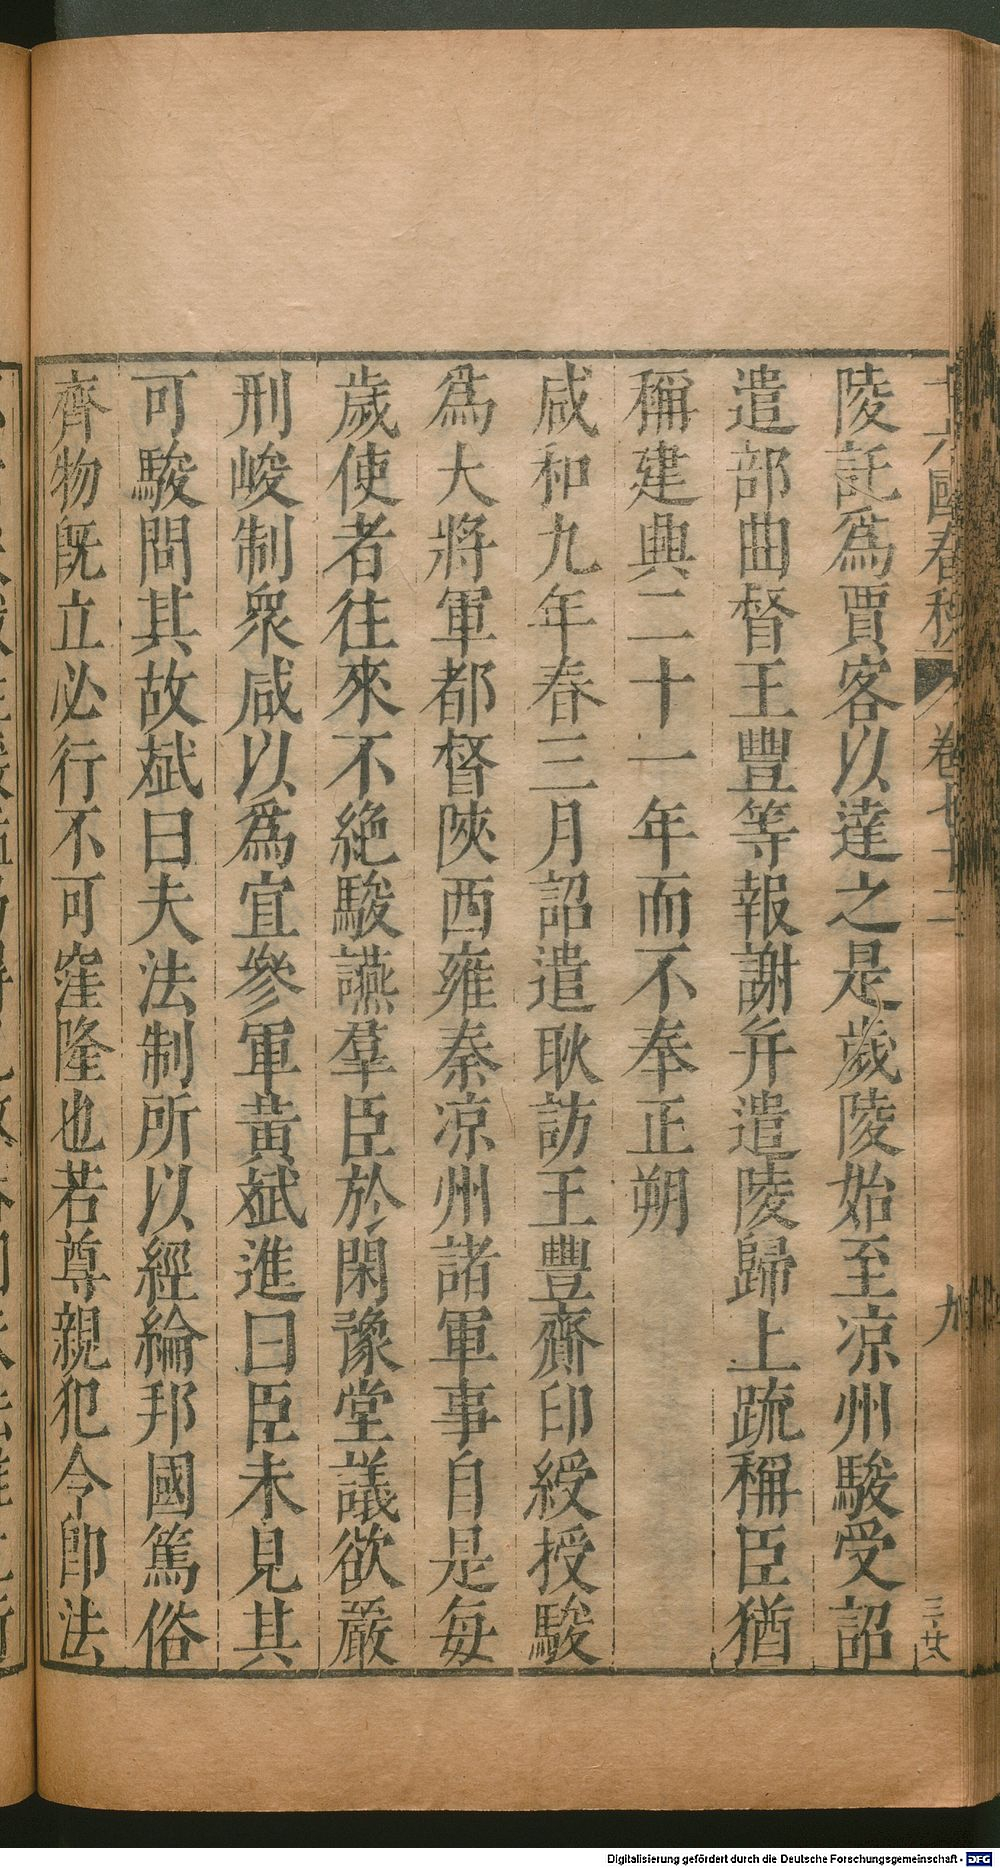 十六國春秋 卷七十二 九
陵託為賈客以達之是歲陵始至涼州駿受詔
遣部曲督王豐等報謝并遣陵歸上疏稱臣猶
稱建興二十一年而不奉正朔
咸和九年春三月詔遣耿訪王豐齎印綬授駿
為大將軍都督陝西雍秦涼州諸軍事自是每
歲使者往來不絶駿讌羣臣於閑豫堂議欲嚴
刑峻制衆咸以為宜參軍黃斌進曰臣未見其
可駿問其故斌曰夫法制所以經綸邦國篤俗
齊物旣立必行不可窪隆也若尊親犯令卽法
Digitalisierung gefördert durch die Deutsche Forschungsgemeinschaft - DFG